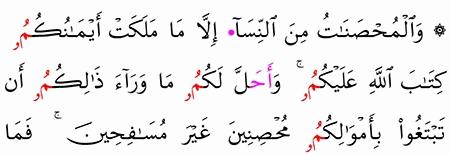 ۞ وَٱلْمُحْصَنَٰتُ مِنَ ٱلنِّسَآ• إِلَّا مَا مَلَكَتْ أَيْمَٰنُكُمُۥ
كِتَٰبَ ٱللَّهِ عَلَيْكُمُۥ ۚ وَأَحَلَّ لَكُمُۥ مَا وَرَآءَ ذَٰلِكُمُۥ أَن
تَبْتَغُوا۟ بِأَمْوَٰلِكُمُۥ مُحْصِنِينَ غَيْرَ مُسَٰفِحِينَ ۚ فَمَا